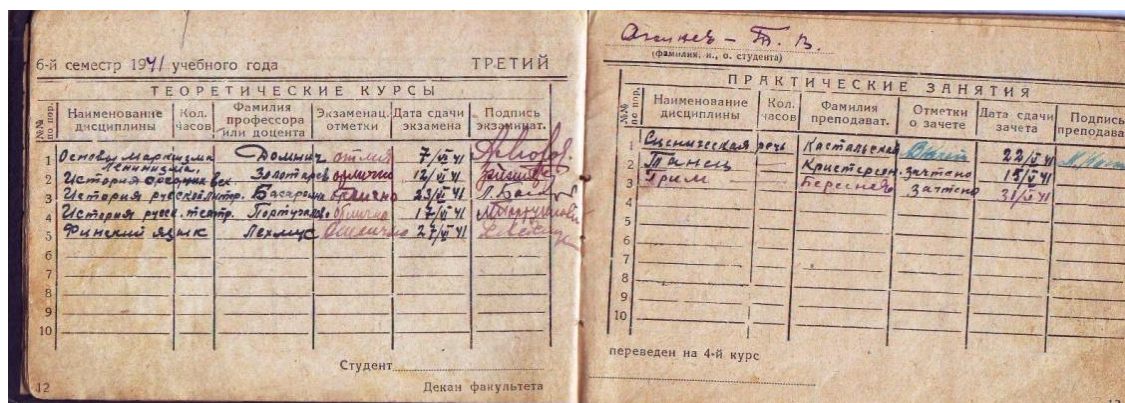 6-й семестр 1941 учебного года ТРЕТИЙ
ТЕОРЕТИЧЕСКИЕ КУРСЫ
№№ по пор. Наименование дисциплины Кол. часов Фамилия профессора или доцента Экзаменац. отметки Дата сдачи экзамена Подпись экзаминат.
1 Основы Марксизма Ленинизма Домнич отлич 7/VI 41
2 История Золотарев отлично 12/VI 41
3 История русской литр. отлично 23/VI 41
4 История русск. театр. отлично 17/VI 41
5 Финский язык Лехмус Отлично 27/VI 41
6
7
8
9
10
Студент
12 Декан факультета
Т. В.
(фамилия, и., о. студента)
ПРАКТИЧЕСКИЕ ЗАНЯТИЯ
№№ по пор. Наименование дисциплины Кол. часов Фамилия преподават. Отметки о зачете Дата сдачи зачета Подпись преподава
1 Сценическая речь Кастальская 22/VI 41
2 Танец Кристерсон зачтено 15/VI 41
3 Грим Береснев зачтено 31/VI 41
4
5
6
7
8
9
10
переведен на 4-й курс